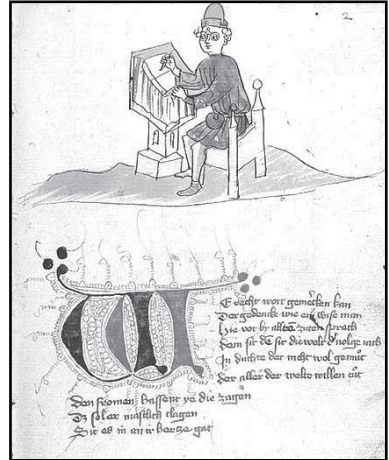 2
W
Er recht wort gemercken kan
Der gedencke wie ein wise man
Hie vor by allten ziten sprach
Dem sit die welt volge nach
In duchte der nicht wol gemut
Der aller der welte willen tut
Den fromen hassent ye die zagen
Dz sol er maslich clagen
Sit es in an ir hertze gat